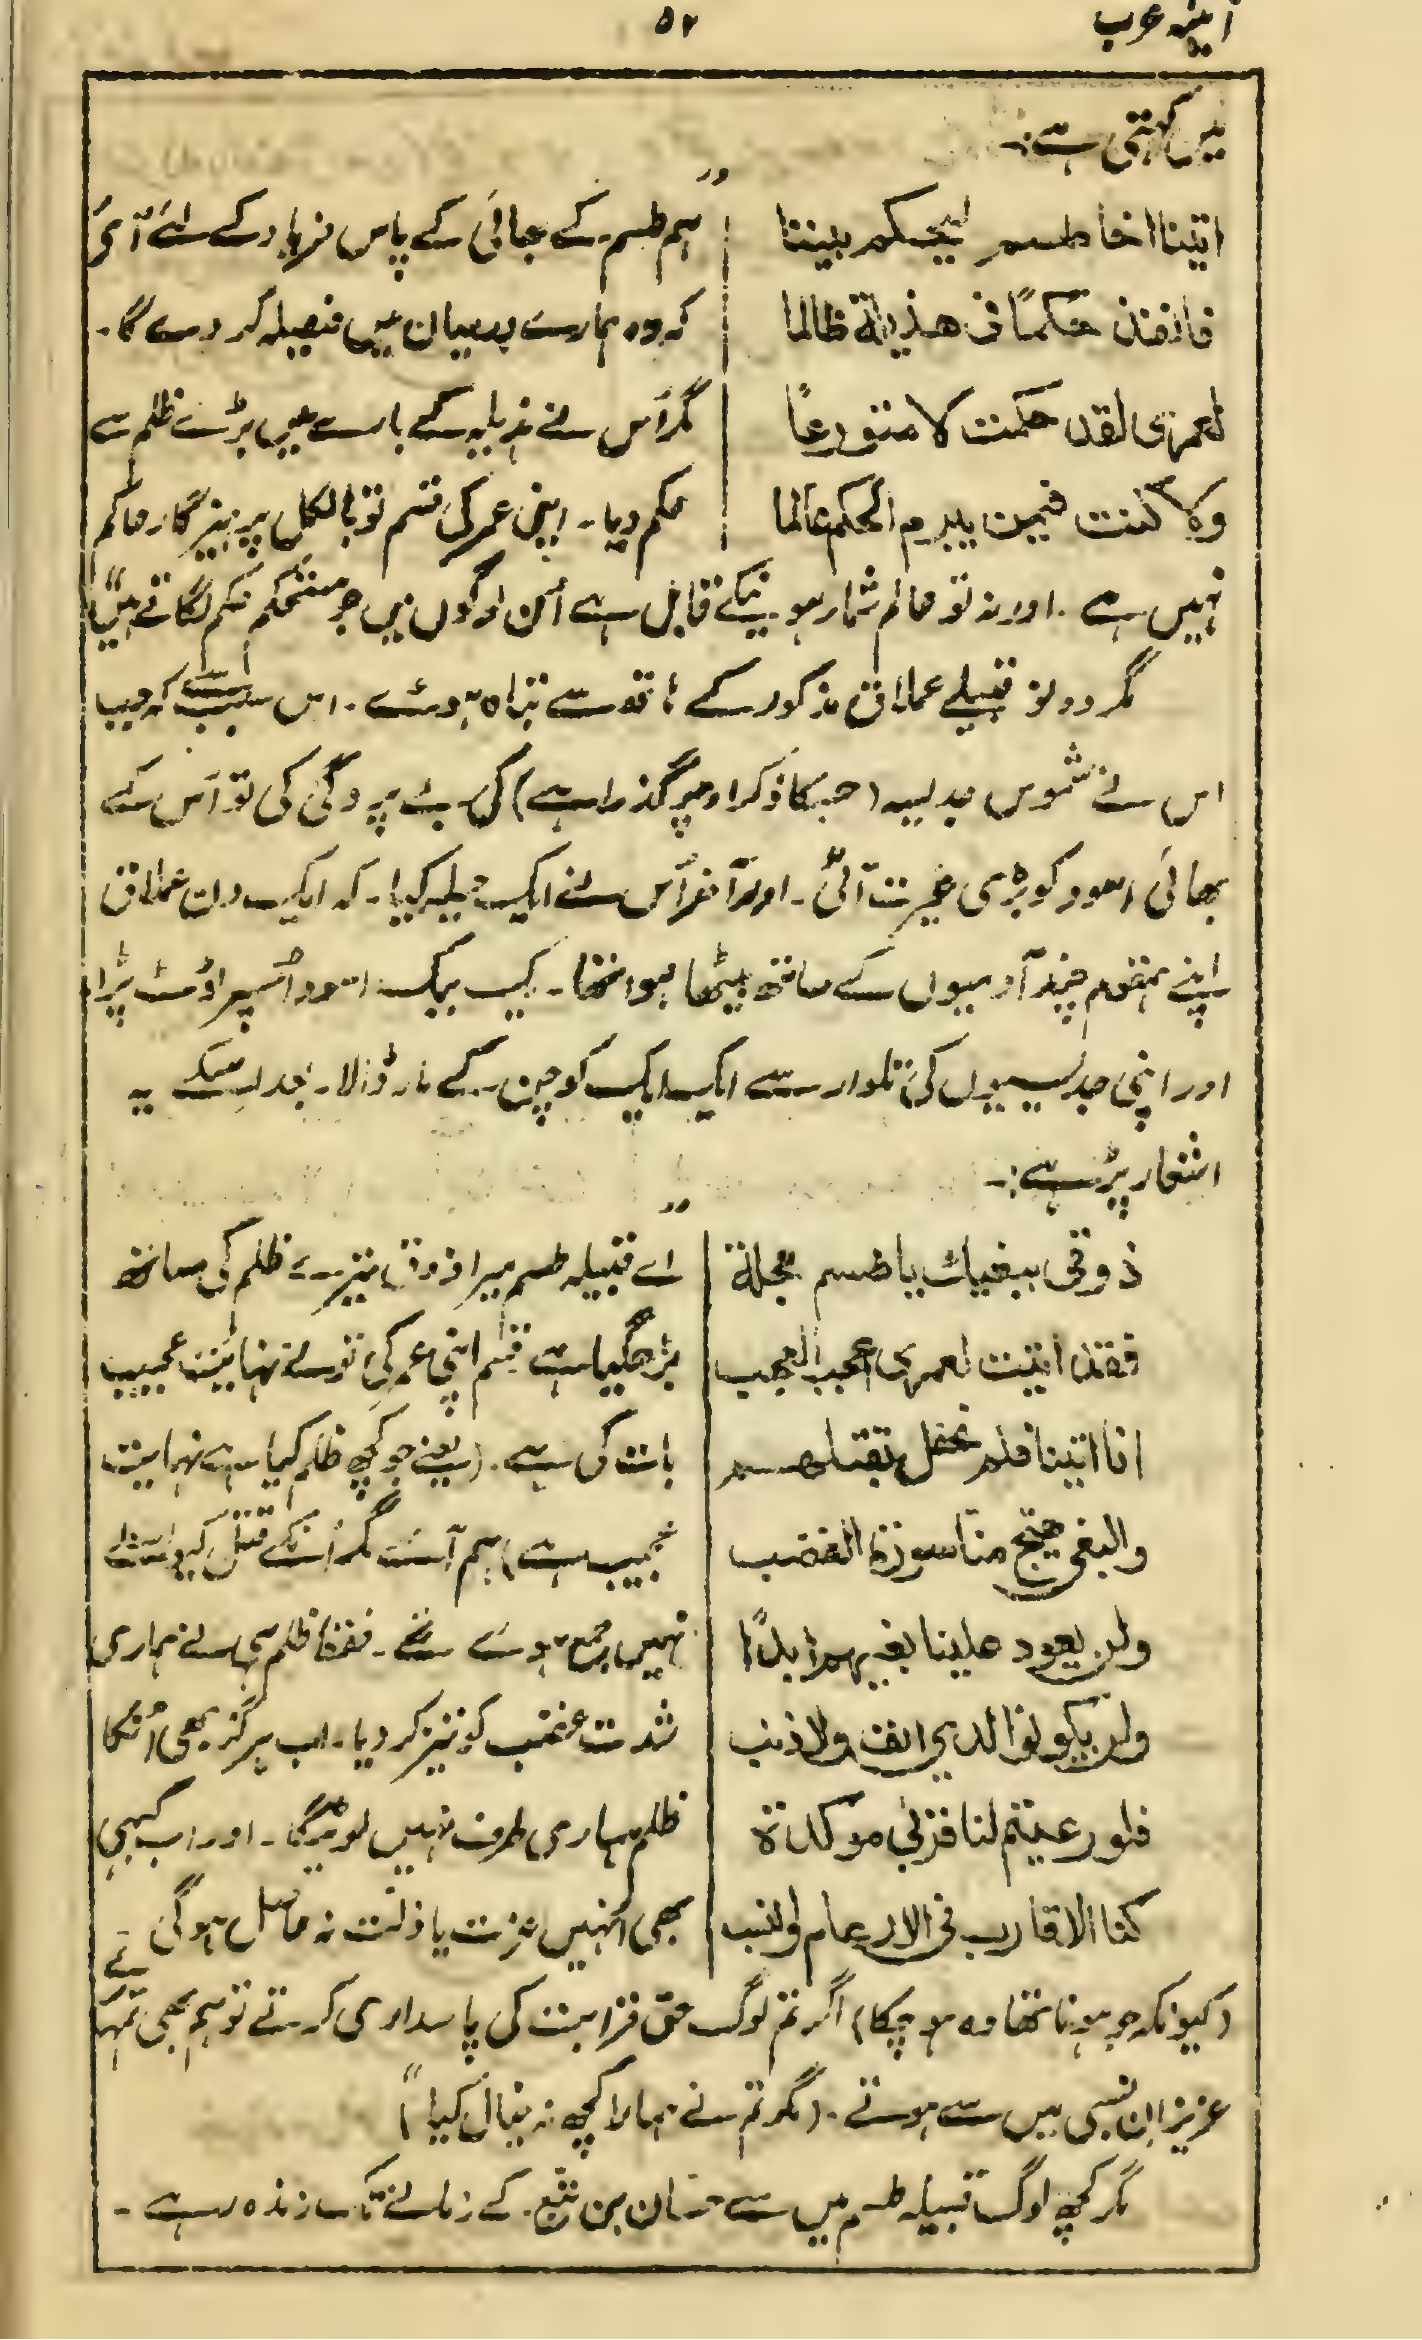 آئینہ عرب ۵۲
میں کہتی ہے:۔
اتینا اخا طسم لیحکم بیننا
"ہم طسم کے بھائی کے پاس فریاد کے لئے آئے
فانفذ حکمًا فی هذیلة ظالما
کہ وہ ہمارے درمیان میں فیصلہ کر دے گا۔
لعمری لقد حکمت لا متورعًا
مگر اُس نے ہذیلہ کے بارے میں بڑے ظلم سے
ولا کنت فیمن یبرم الحکم عالما
حکم دیا۔ اپنی عمر کی قسم تو بالکل پرہیزگار حاکم
نہیں ہے۔ اور نہ تو عالم شمار ہونیکے قابل ہے اُن لوگوں میں جو مستحکم حکم لگاتے ہیں"
مگر دونو قبیلے عملاق مذکور کے ہاتھ سے تباہ ہوئے۔ اس سبب سے کہ جب
اس نے شموس جدلیسیہ (جسکا ذکر اوپر گذرا ہے) کی بے پردگی کی تو اُس کے
بھائی اسود کو بڑی غیرت آئی۔ اور آخر اُس نے ایک حیلہ کیا۔ کہ ایک دن عملاق
اپنے ہمقوم چند آدمیوں کے ساتھ بیٹھا ہوا تھا۔ یک بیک اسود اُسپر اوٹ پڑا
اور اپنی جدیسیوں کی تلوار سے ایک ایک کو چن کے مار ڈالا۔ بعد اسکے یہ
اشعار پڑہے:۔
ذوقی ببغیك یا طسم مجلة
"اے قبیلہ طسم میرا ذوق تیرے ظلم کی ساتھ
فقد اتیت لعمری اعجب العجب
بڑھ گیا ہے قسم اپنی عمر کی تو نے نہایت عجیب
انا اتینا فلم نحفل بقتلهم
بات کی ہے۔ (یعنے جو کچھ ظلم کیا ہے نہایت
والبغی هیج منا سورة الغضب
عجیب ہے) ہم آئے مگر اُنکے قتل کیواسطے
ولن یعود علینا بغیهم ابدًا
نہیں جمع ہوئے تھے۔ فقط ظلم ہی نے ہماری
ولن یکونوا لذی انف ولا ذنب
شدت غضب کو تیز کر دیا۔ اب ہرگز بھی اُنکا
فلو رعیتم لنا قربی موکدة
ظلم ہماری طرف نہیں لوٹیگا۔ اور اب کبہی
کنا الاقارب فی الارحام والنسب
بھی انہیں عزت یا ذلت نہ حاصل ہوگی
(کیونکہ جو ہونا تھا وہ ہو چکا) اگر تم لوگ حق قرابت کی پاسداری کرتے تو ہم بھی تمہارے
عزیزان نسبی میں سے ہوتے۔ (مگر تم نے ہمارا کچھ نہ خیال کیا)"
مگر کچھ لوگ قبیلہ طسم میں سے حسان بن تبع کے زمانے تک زندہ رہے۔